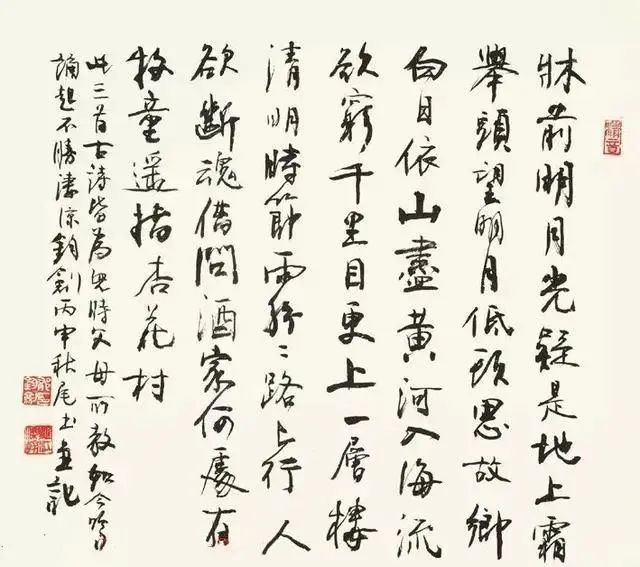 牀前明月光疑是地上霜
舉頭望明月低頭思故鄉
白日依山盡黃河入海流
欲窮千里目更上一層樓
清明時節雨紛々路上行人
欲斷魂借問酒家何處有
牧童遥指杏花村
此三首古詩皆為兒時父母所教如今吟
誦起不勝淒涼鈞劍丙申秋尾书並記